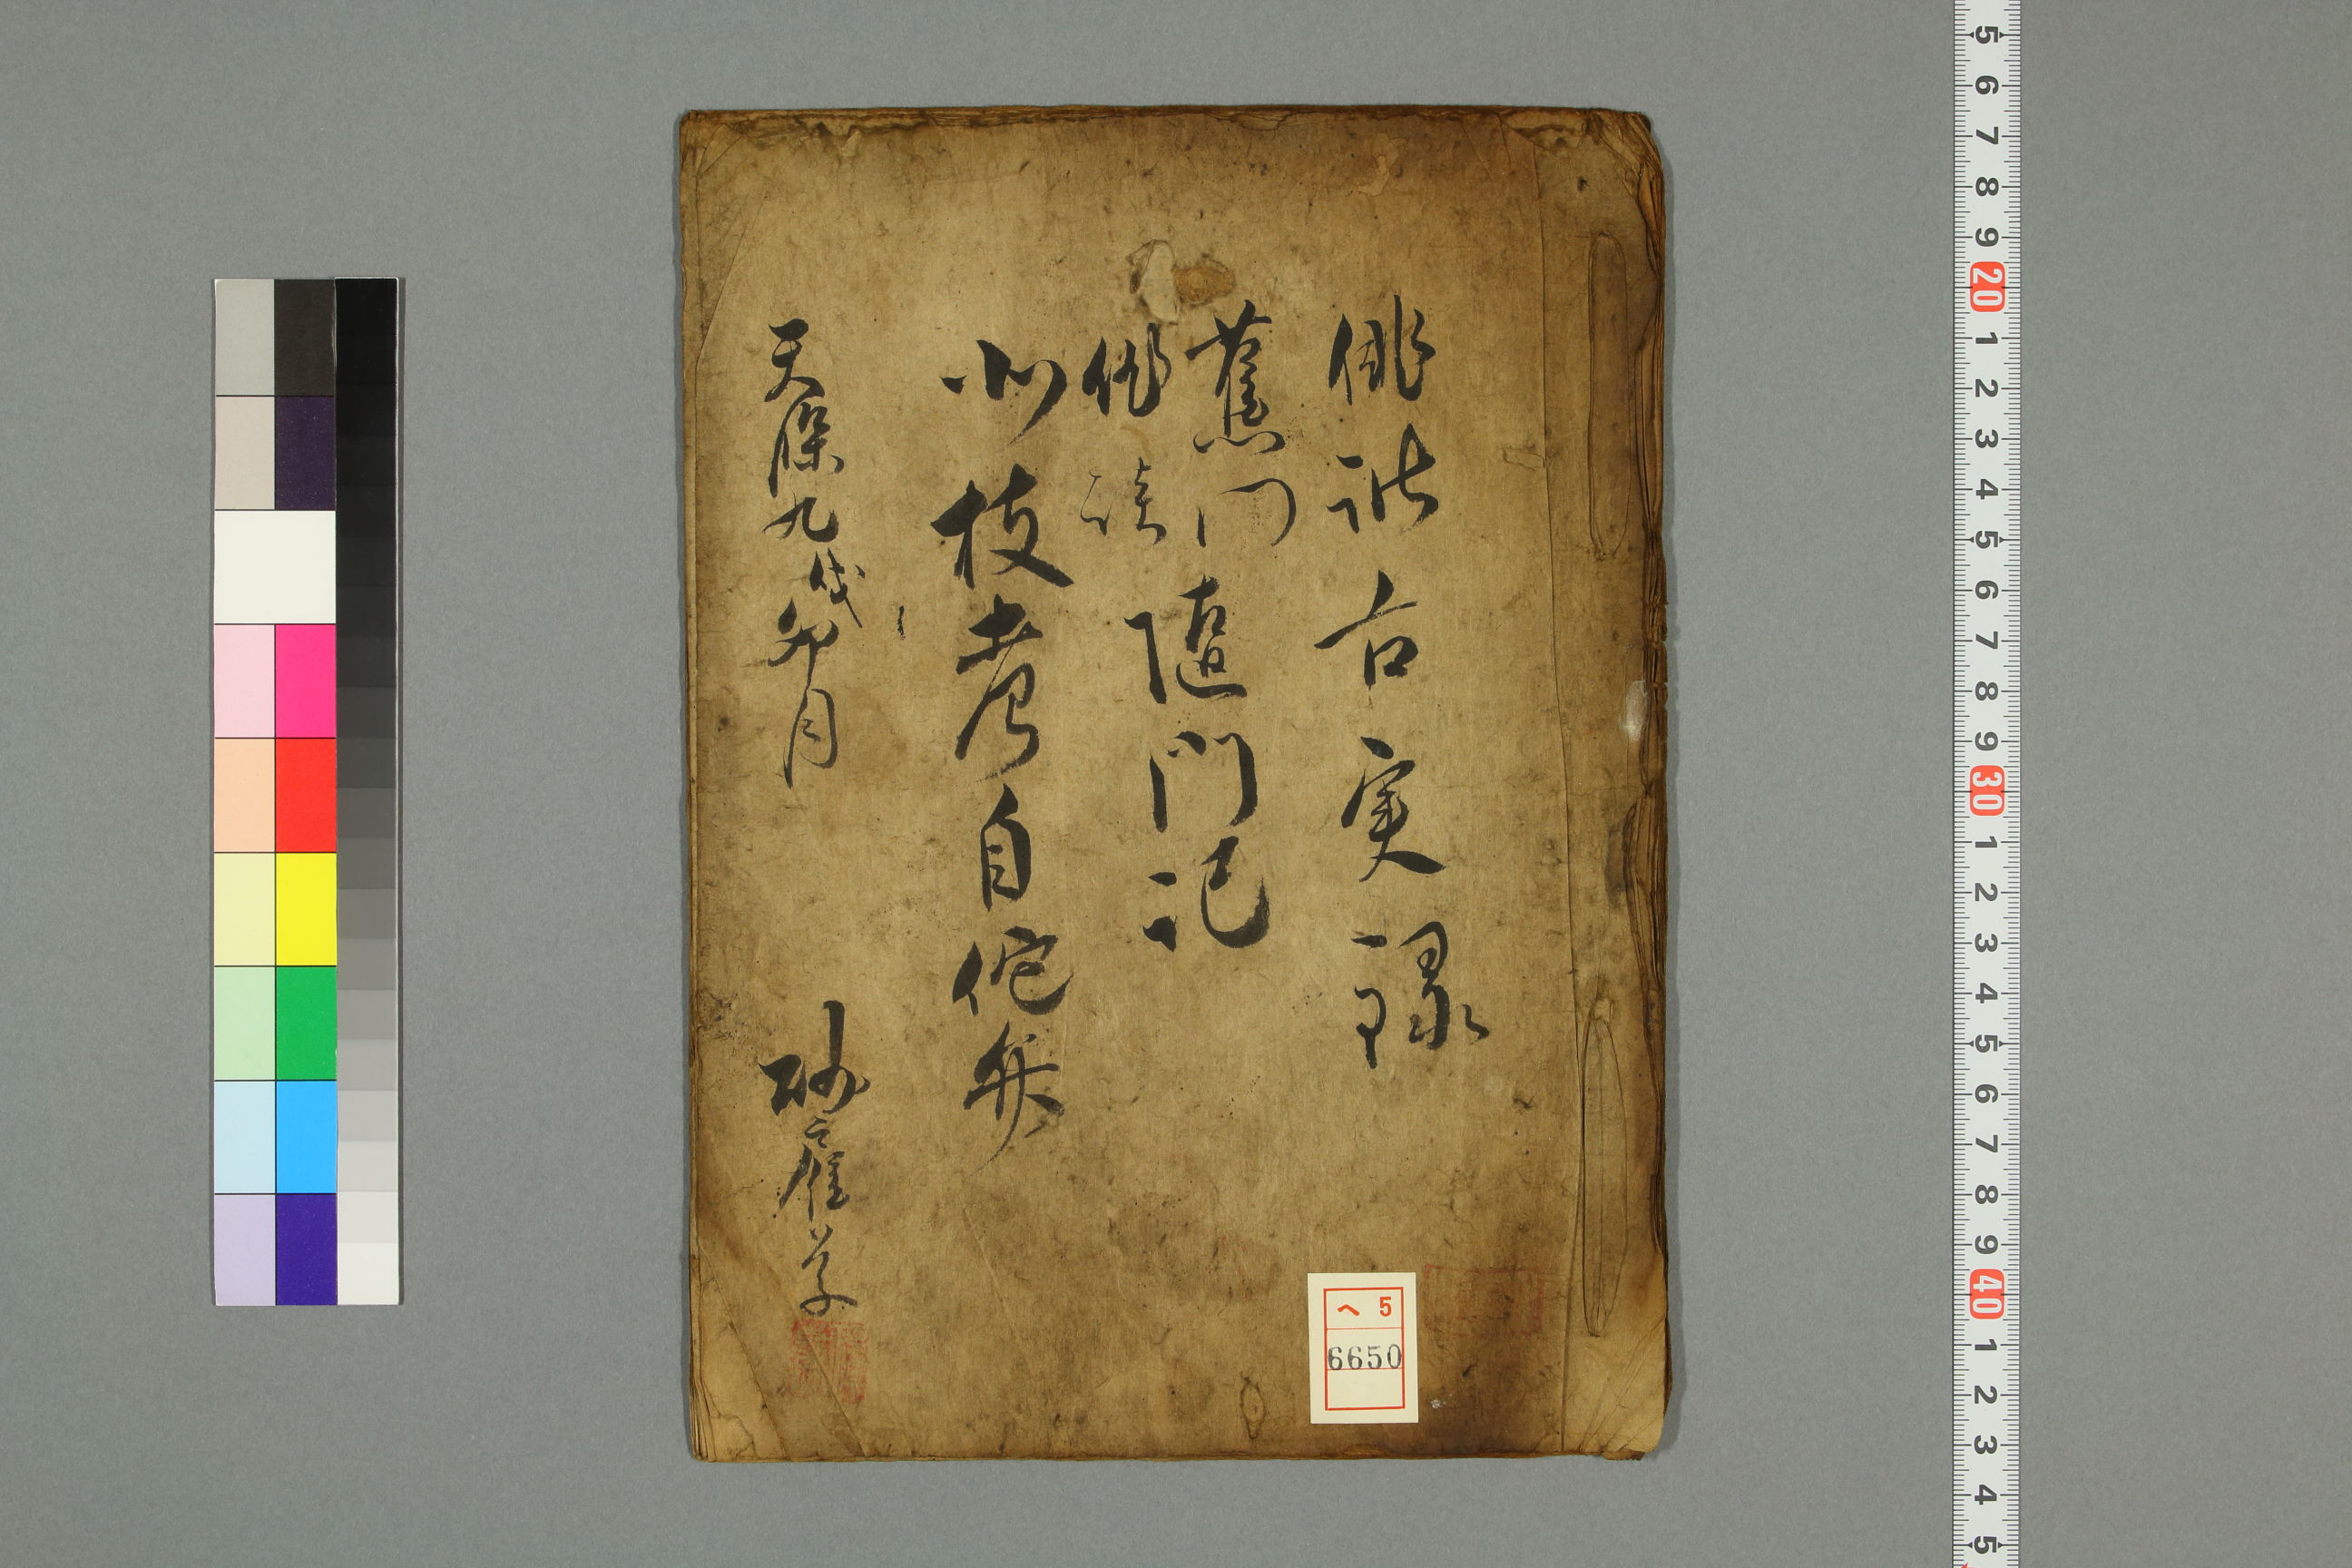 俳諧古実録
蕉門
俳談
随門記
北枝考自佗弁
天保九戌卯月
砂雁草
へ 5
6650
5 6 7 8 9 20 1 2 3 4 5 6 7 8 9 30 1 2 3 4 5 6 7 8 9 40 1 2 3 4 5